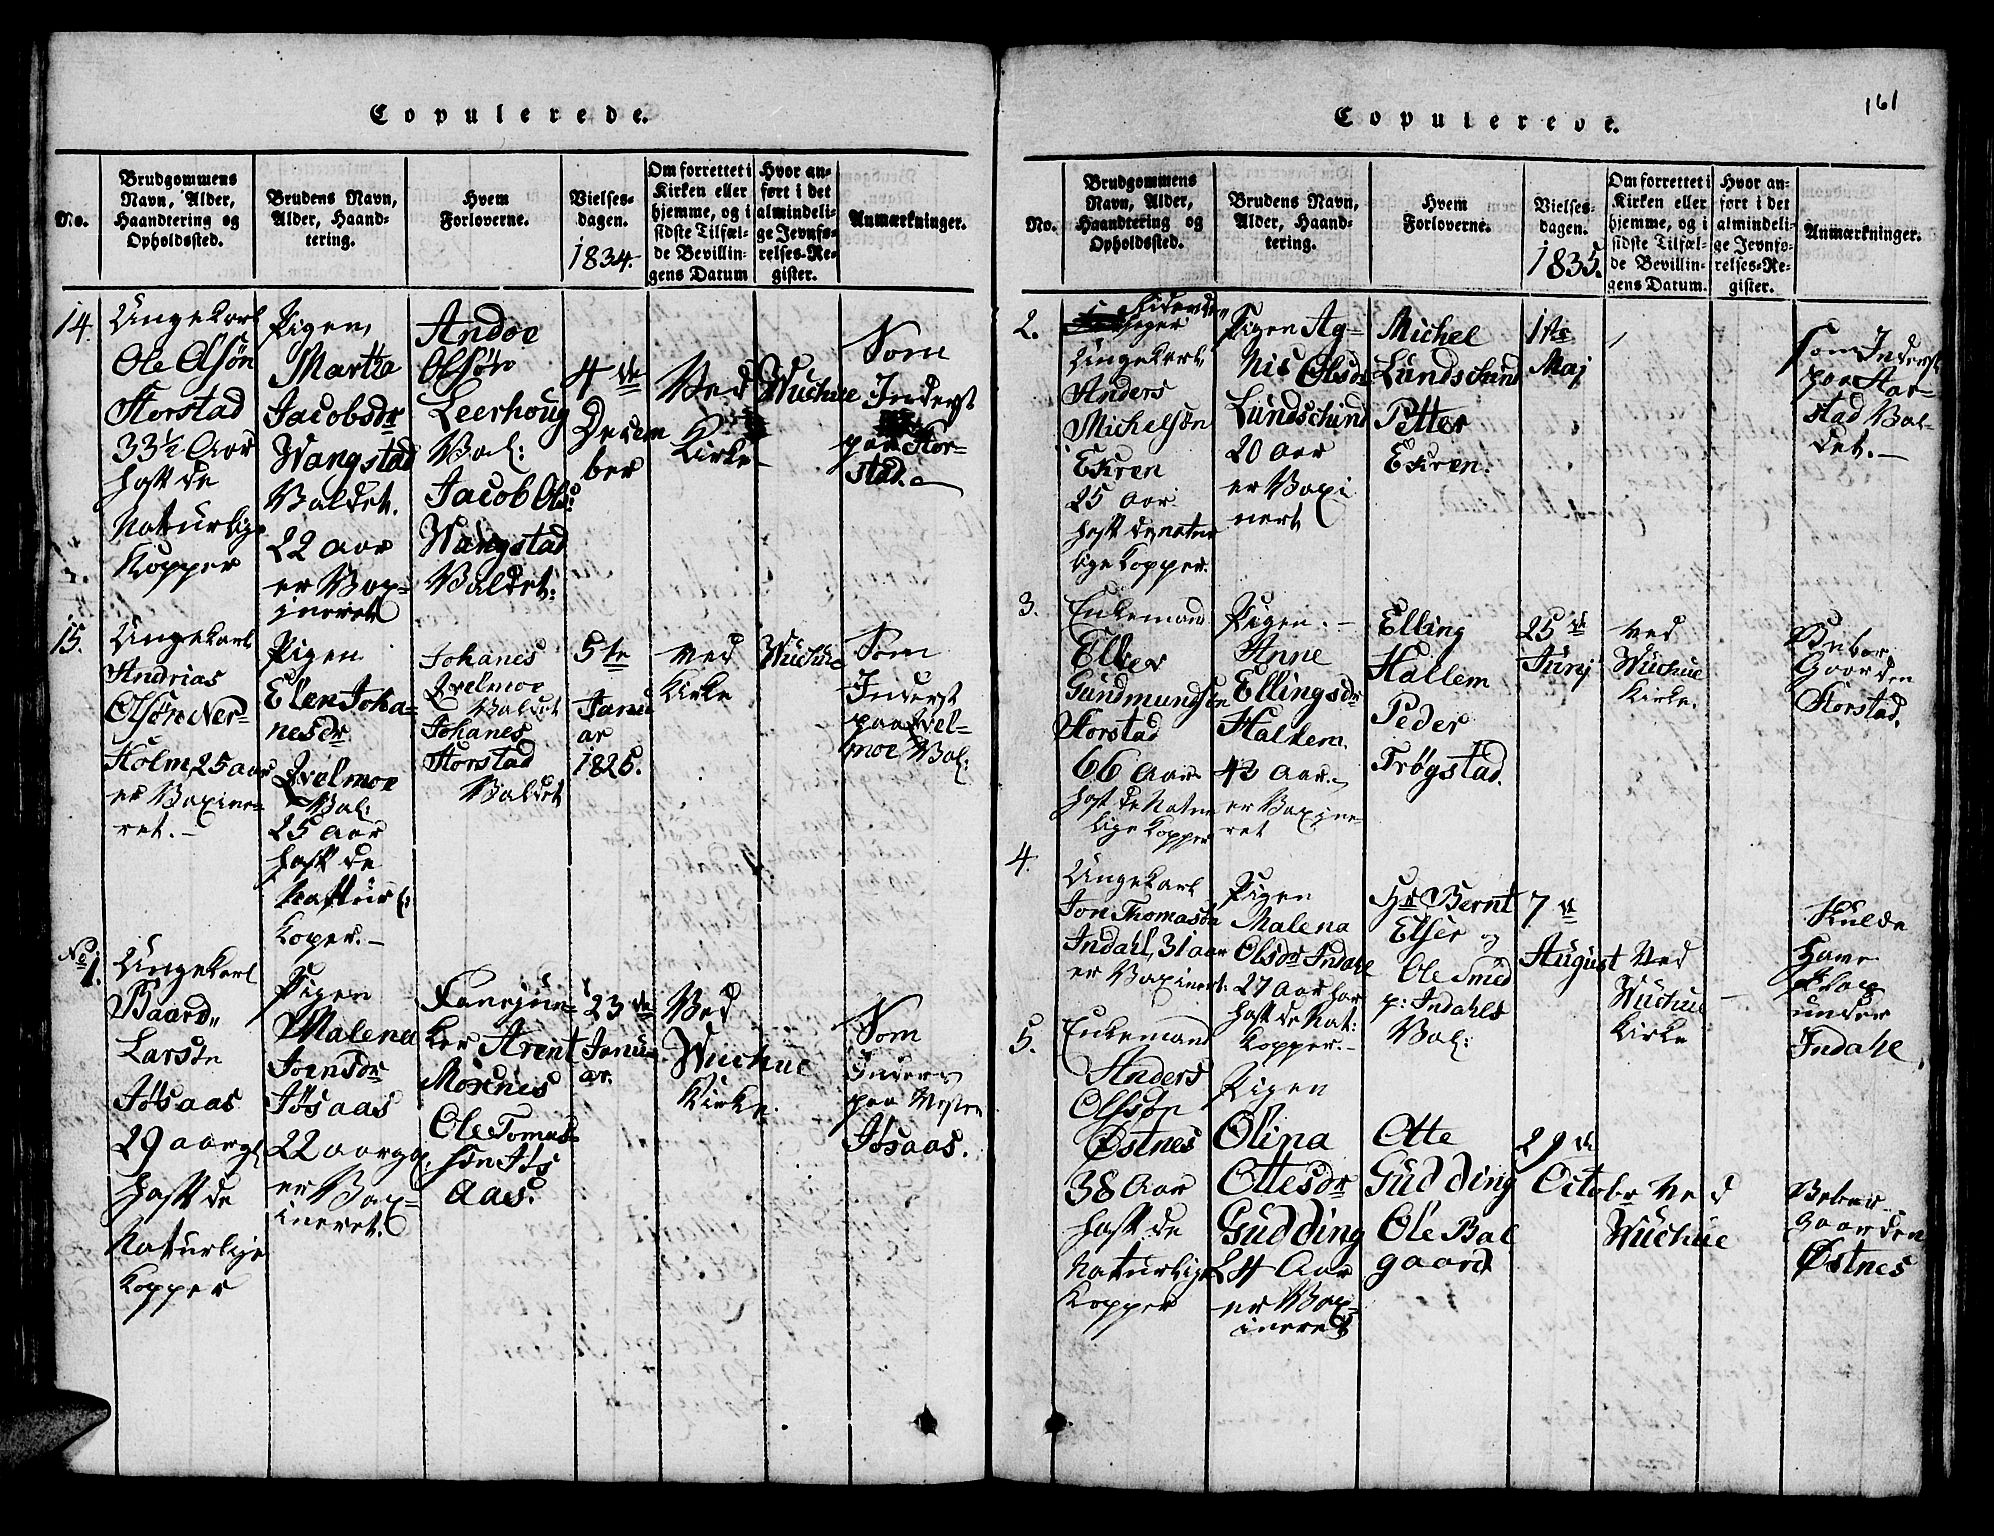 Copulerede.
No.
Brudgommens
Navn, Alder,
Haandtering og
Opholdssted.
Brudens Navn,
Alder, Haand-
tering.
Hvem
Forloverne.
Vielses-
dagen.
1834.
Om forrettet i
Kirken eller
hjemme, og i
sidste Tilfæl-
de Bevillin-
gens Datum
Hvor an-
ført i det
almindeli-
ge Jevnfø-
relses-Re-
gister.
Anmærkninger.
14.
Ungekarl
Ole Olsøn
Storstad
33½ Aar
haft de
Naturlige
Kopper
Pigen,
Martha
Jacobsdr
Wangstad
Valdet.
22 Aar
er Vax-
ineret
Andoe
Olsøn
Leerhoug
Val:
Jacob Ols:
Wangstad
Valdet:
4de
Decem
ber
Ved
Kirke
Wuchue
Som
Inderst
paa Stor-
stad.
15.
Ungekarl
Andrias
Olsøn Ner-
Holm, 25 aar
er Vaxine-
ret.
Pigen
Elen Joha-
nesdr
Qvelmoe
Val:
25 Aar
haft de
Nattürl:
Koper.
Johanes
Qvelmoe
Valdet
Johanes
Storstad
Valdet
5te
Janu
ar
1825.
ved
Kirke
Wuchue
Som
Inderst
paa Qvel-
moe Val:
No
1.
Ungekarl
Baard
Larsen
Jøsaas
29 aargl
haft de
Naturlige
Kopper
Pigen
Malena
Joensdr
Jøsaas
22 aargl.
er Vax-
ineret.
Fanejun-
ker Arent
Moxnes
Ole Tomas
søn Jøs
aas.
23de
Janu-
ar.
Ved
Wuchue
Kirke.
Som
Inderst
paa Vesten
Jøsaas.
Copulerede.
161
No.
Brudgommens
Navn, Alder,
Haandtering og
Opholdssted.
Brudens Navn,
Alder, Haand-
tering.
Hvem
Forloverne.
Vielses-
dagen.
1835.
Om forrettet i
Kirken eller
hjemme, og i
sidste Tilfæl-
de Bevillin-
gens Datum.
Hvor an-
ført i det
almindeli-
ge Jevnfø-
relses-Re-
gister.
Anmærkninger.
2.
Jeger
Ungekarl
Anders
Michelsøn
Ekren
25 Aar
haft de natur
lige Kopper.
Pigen Ag-
nis Olsdr
Lundschind
20 Aar
er Vaxi
nert
Michel
Lundschind
Petter
Ekren:
1ste
Maj
Som Inderst
paa Stor-
stad Val-
det.
3.
Enkemand
Ellev
Gundmundsøn
Storstad
66 Aar
haft de Natur
lige Kopper
Pigen.
Anne
Ellingsdr
Hallem.
42 Aar.
er Vaxine-
ret
Elling
Hallem
Peder
Trøgstad.
25de
Junj
ved
Wuchue
Kirke.
Beboe
Gaarden
Storstad.
4.
Ungekarl
Jon Thomasøn
Indahl, 31 aar
er Vaxinert.
Pigen
Malena
Olsdr Indahl
27 Aar har
haft de Nat:
Kopper.
Hr Bernt
Elser og
Ole Smed
p: Indahls
Val:
7de
August
Ved
Wuchue
Kirke
Skulde
Have
Plads
under
Indahl
5.
Enkemand
Anders
Olsøn
Østnes
38 Aar
haft de
Naturlige
Kopper
Pigen
Olina
Ottesdr
Gudding
24 Aar
er Vax-
ineret
Otte
Gudding
Ole Bal
gaard
29de
Octobr
Ved
Wuchue
Beboer
Gaarden
Østnes